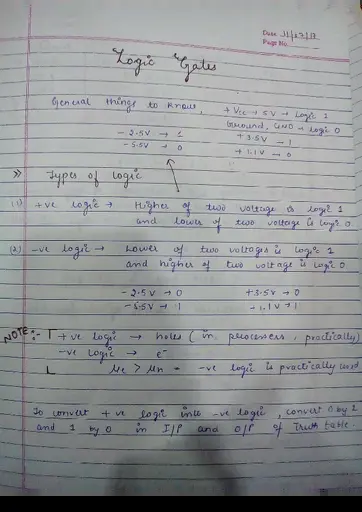 Date
Page No.
Logic Gates
General things to know, +Vcc → 5V → Logic 1
Ground, GND → Logic 0
-2.5V → 1 +3.5V → 1
-5.5V → 0 +1.1V → 0
>> Types of logic
(1) +ve logic → Higher of two voltage is logic 1
and lower of two voltage is logic 0
(2) -ve logic → Lower of two voltages is logic 1
and higher of two voltage is logic 0
-2.5V → 0 +3.5V → 0
-5.5V → 1 +1.1V → 1
NOTE:- +ve logic → holes (in processers, practically)
-ve logic → e⁻
μe > μn = -ve logic is practically used
To convert +ve logic into -ve logic, convert 0 by 1
and 1 by 0 in I/P and O/P of Truth table.